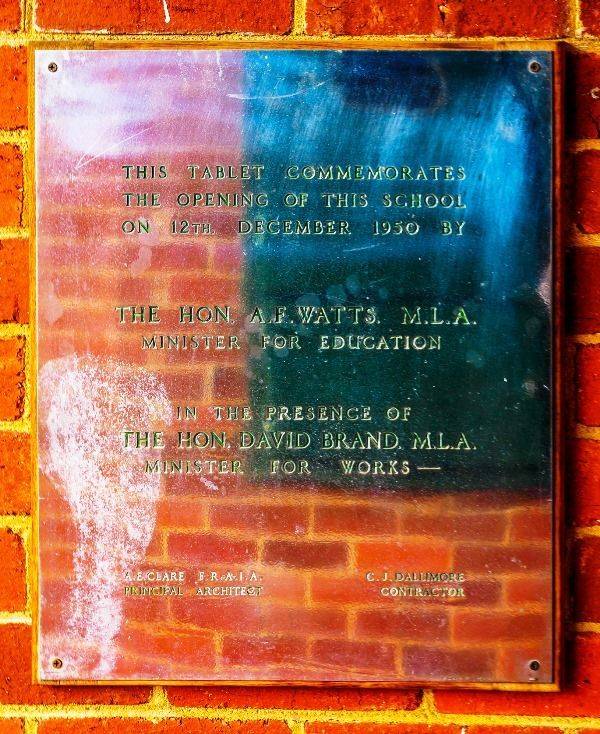 THIS TABLET COMMEMORATES
THE OPENING OF THIS SCHOOL
ON 12TH. DECEMBER 1950 BY
THE HON. A.F. WATTS. M.L.A.
MINISTER FOR EDUCATION
IN THE PRESENCE OF
THE HON. DAVID BRAND. M.L.A.
MINISTER FOR WORKS —
A.E. CLARE F.R.A.I.A.
PRINCIPAL ARCHITECT
C.J. DALLIMORE
CONTRACTOR